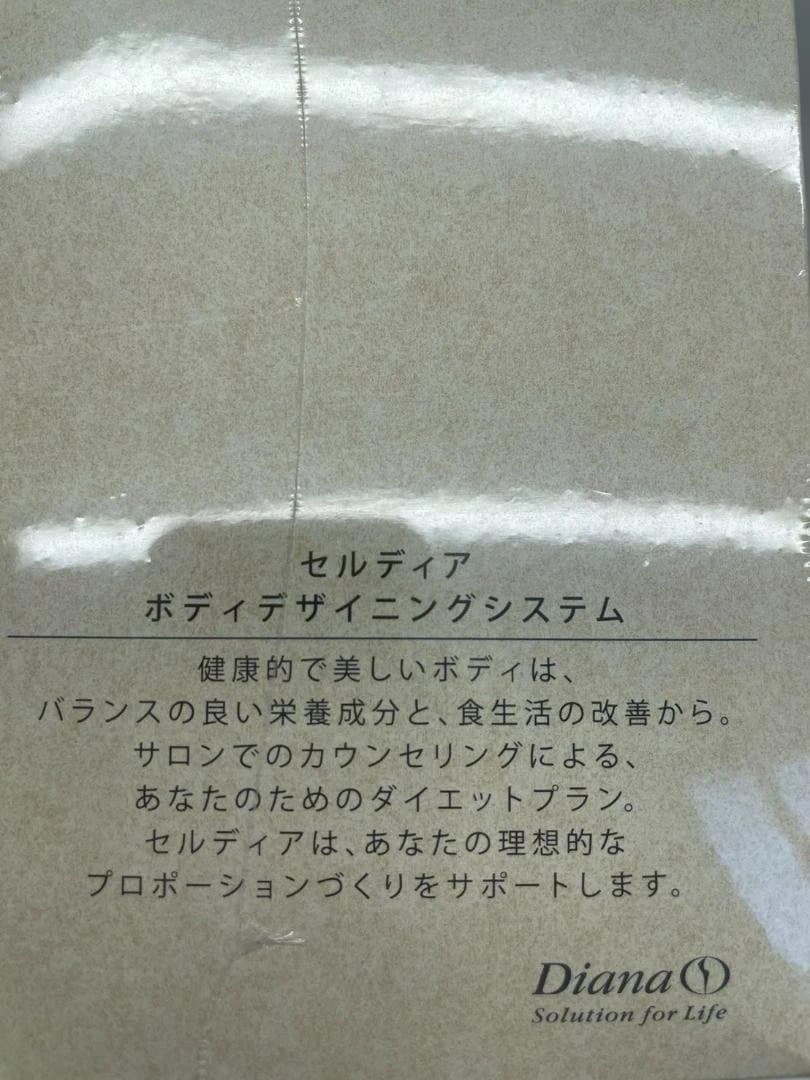 セルディア
ボディデザイニングシステム
健康的で美しいボディは、
バランスの良い栄養成分と、食生活の改善から。
サロンでのカウンセリングによる、
あなたのためのダイエットプラン。
セルディアは、あなたの理想的な
プロポーションづくりをサポートします。
Diana
Solution for Life